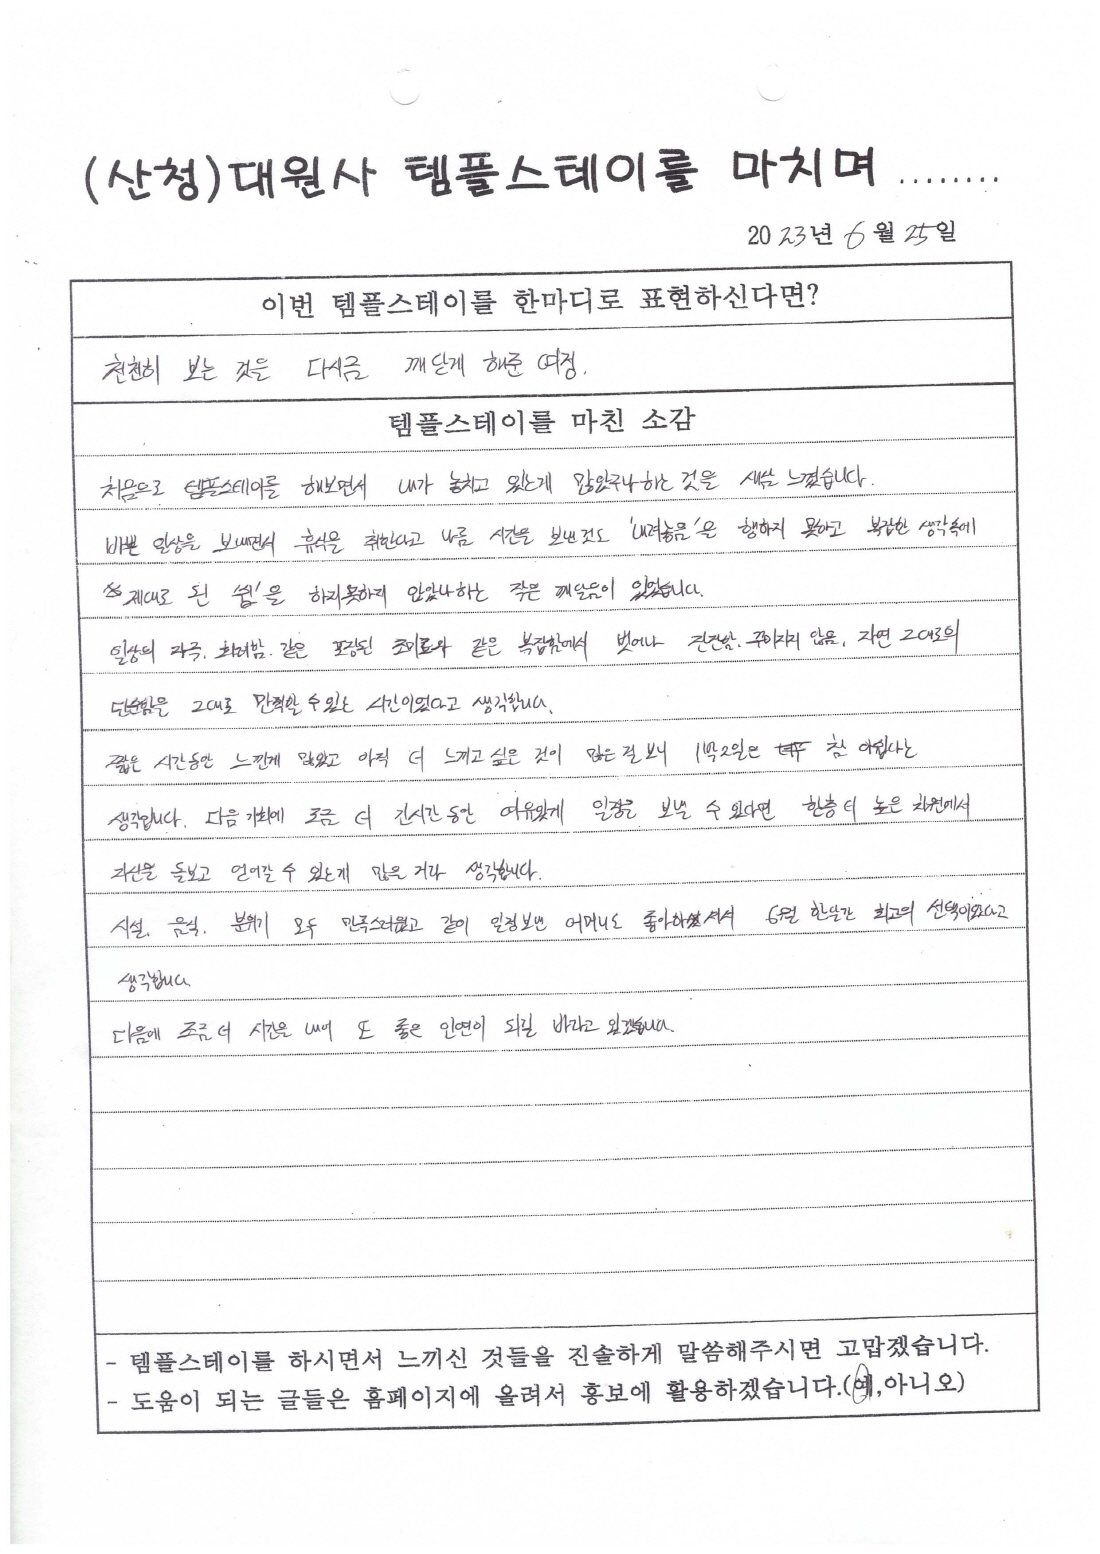 (산청)대원사 템플스테이를 마치며........
2023년 6월 25일
이번 템플스테이를 한마디로 표현하신다면?
천천히 보는 것을 다시금 깨닫게 해준 여정.
템플스테이를 마친 소감
처음으로 템플스테이를 해보면서 내가 놓치고 있는게 많았구나하는 것을 새삼 느꼈습니다.
바쁜 일상을 보내면서 휴식을 취한다고 나름 시간을 보낸것도 '내려놓음'은 행하지 못하고 복잡한 생각속에
'제대로 된 쉼'을 하지못하지 않았나하는 작은 깨달음이 있었습니다.
일상의 자극, 화려함 같은 포장된 조미료와 같은 복잡함에서 벗어나 진진함, 꾸미지지 않음, 자연 그대로의
단순함을 그대로 만끽할 수 있는 시간이었다고 생각합니다.
짧은 시간동안 느낀게 많았고 아직 더 느끼고 싶은 것이 많은 걸 보니 1박2일은 참 아쉽다는
생각입니다. 다음 기회에 조금 더 긴시간 동안 여유있게 일정을 보낼 수 있다면 한층 더 높은 차원에서
자신을 돌보고 얻어갈 수 있는게 많을 거라 생각합니다.
시설, 음식, 분위기 모두 만족스러웠고 같이 일정보낸 어머니도 좋아하셨어서 6월 한달간 최고의 선택이었다고
생각합니다.
다음에 조금 더 시간을 내어 또 좋은 인연이 되길 바라고 있겠습니다.
- 템플스테이를 하시면서 느끼신 것들을 진솔하게 말씀해주시면 고맙겠습니다.
- 도움이 되는 글들은 홈페이지에 올려서 홍보에 활용하겠습니다.(예,아니오)